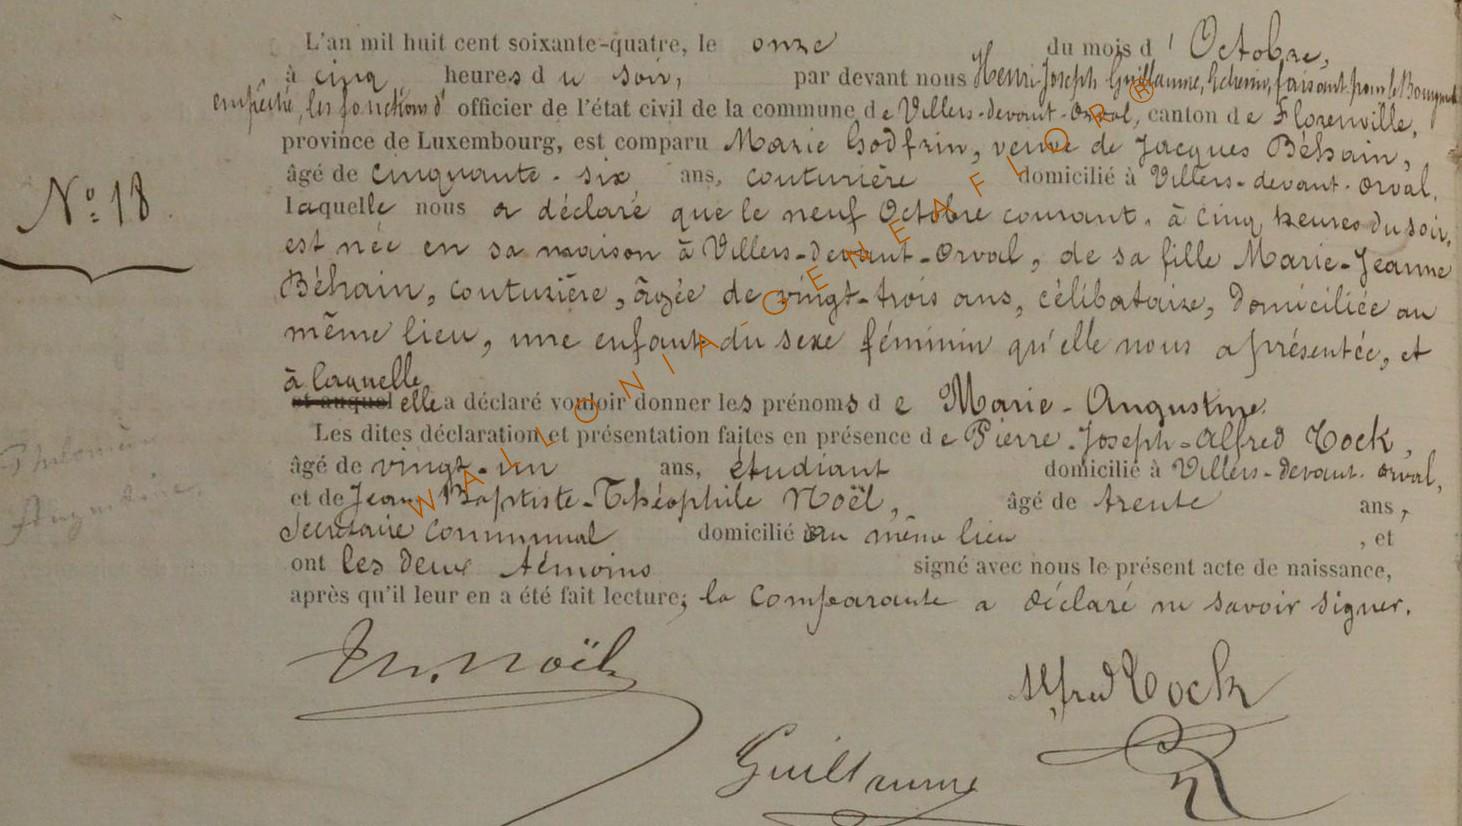 L'an mil huit cent soixante-quatre, le onze du mois d'Octobre,
à cinq heures du soir, par devant nous Henri-Joseph Guillaume, Echevin, faisant pour le Bourgmestre
empêché, les fonctions d'officier de l'état civil de la commune de Villers-devant-Orval, canton de Florenville,
province de Luxembourg, est comparu Marie Godfrin, veuve de Jacques Béhain,
âgé de cinquante-six ans, couturière domicilié à Villers-devant-Orval,
laquelle nous a déclaré que le neuf Octobre courant, à cinq heures du soir,
N° 18.
est née en sa maison à Villers-devant-Orval, de sa fille Marie-Jeanne
Béhain, couturière, âgée de vingt-trois ans, célibataire, domiciliée au
même lieu, une enfant du sexe féminin qu'elle nous a présentée, et
à laquelle
et auquel elle a déclaré vouloir donner les prénoms de Marie-Augustine.
Les dites déclaration et présentation faites en présence de Pierre-Joseph-Alfred Tock,
âgé de vingt-un ans, étudiant domicilié à Villers-devant-Orval,
et de Jean-Baptiste-Théophile Noël, âgé de trente ans,
Secrétaire communal domicilié au même lieu, et
ont les deux témoins signé avec nous le présent acte de naissance,
après qu'il leur en a été fait lecture; la comparante a déclaré ne savoir signer.
Th. Noël
Alfred Tock
Guillaume
WALLONIA-GENEAFLOR®